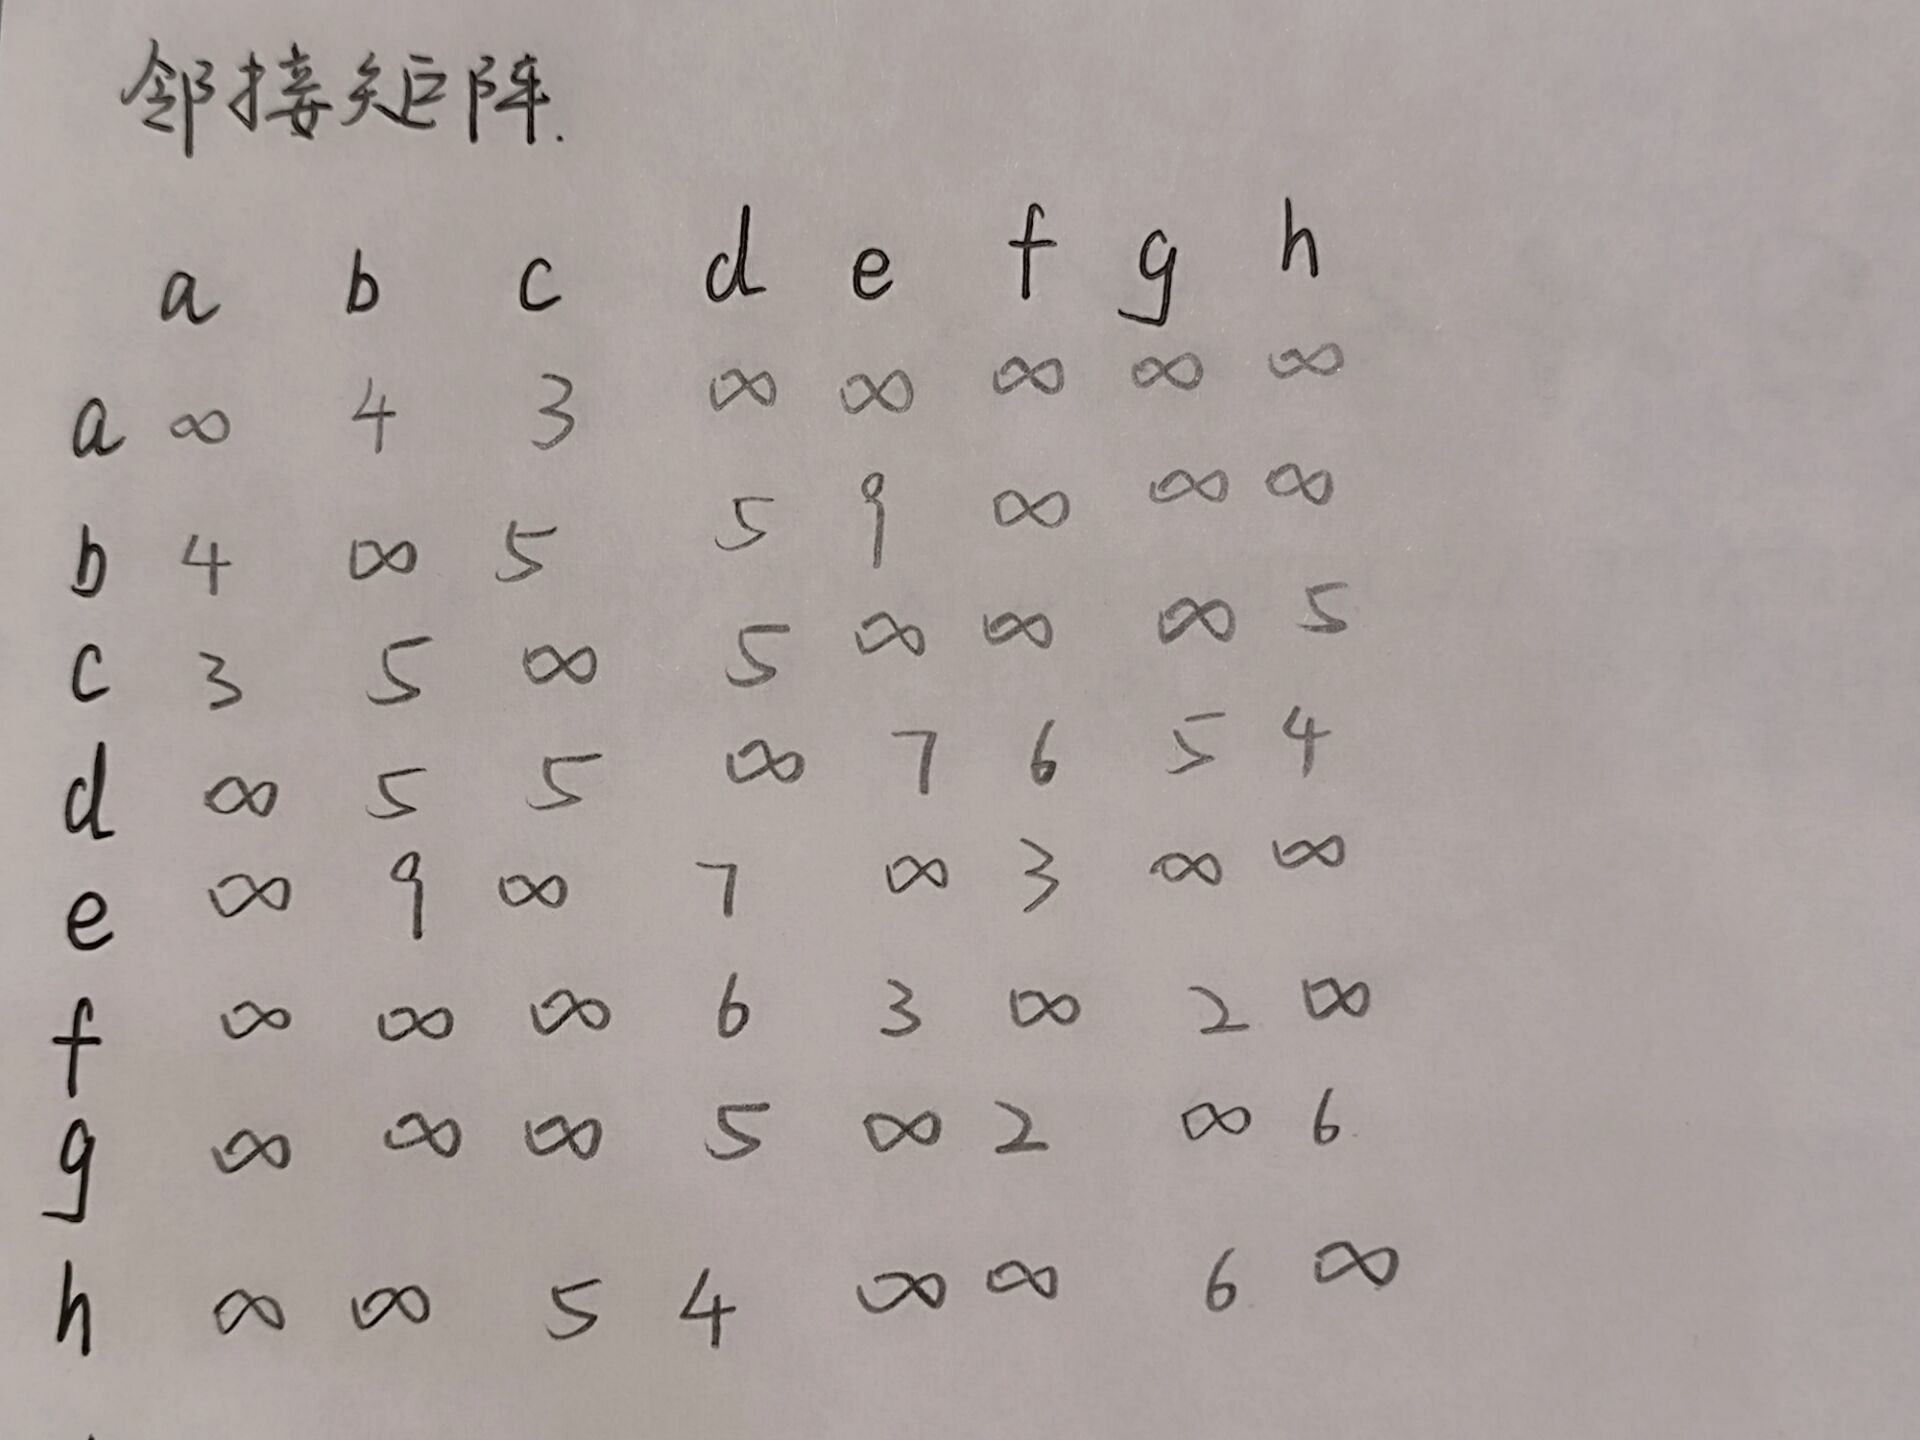 邻接矩阵.
a b c d e f g h
a ∞ 4 3 ∞ ∞ ∞ ∞ ∞
b 4 ∞ 5 5 9 ∞ ∞ ∞
c 3 5 ∞ 5 ∞ ∞ ∞ 5
d ∞ 5 5 ∞ 7 6 5 4
e ∞ 9 ∞ 7 ∞ 3 ∞ ∞
f ∞ ∞ ∞ 6 3 ∞ 2 ∞
g ∞ ∞ ∞ 5 ∞ 2 ∞ 6
h ∞ ∞ 5 4 ∞ ∞ 6 ∞